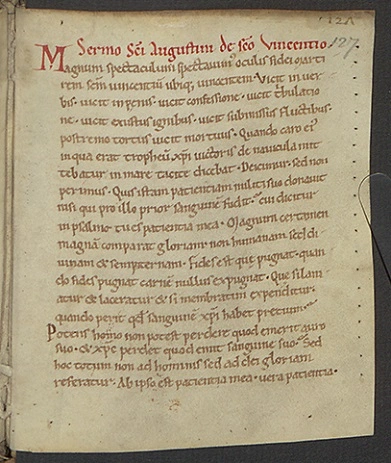 127
127
Sermo Sc̄i Augustini de sc̄o Vincentio
Magnum spectaculum spectavim᷒ oculis fidei marti
rem sc̄m vincentiū ubiq; vincentem. Vicit in ver
bis. vicit in penis. vicit confessione. vicit tribulatio
ne. vicit exustus ignibus. vicit submissus fluctibus.
postremo tortus vicit mortuus. Quando caro ei᷒
in qua erat tropheū xp̄i victoris de navicula mit
tebatur in mare tacite dicebat. Deicimur. sed non
perimus. Quis istam patientiam militi suo donavit
nisi qui pro illo prior sanguinē fudit. cui dicitur
in psalmo. tu es patientia mea. Magnum certamen
magnā comparat gloriam. non humanam sed di
vinam & sempiternam. Fides est que pugnat. quan
do fides pugnat carnē nullus expugnat. Que si lani
atur & laceratur & si membratim expenditur.
quando perit qđ sanguine xp̄i habet precium.
Potens homo non potest perdere quod emerit auro
suo. & xp̄c perdet quod emit sanguine suo. Sed
hoc totum non ad hominis sed ad dei gloriam
referatur. Ab ipso est patientia mea. vera patientia.